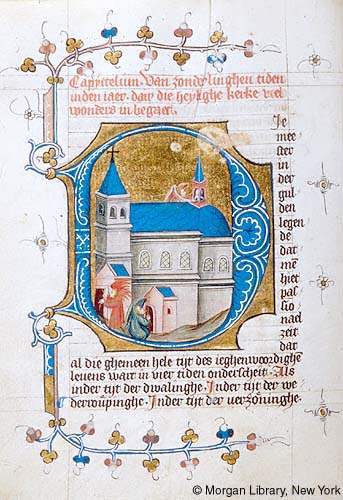 Capytelium. Van zonderlinghen tiden
inden iaer. dair die heylighe kerke veel
wonders in begaet.
Je
mee
ster
in
der
gul
den
legen
de
dat
mē
hiet
pas
sio
nael
zeit
dat
al die ghemeen hele tijt des ieghenwoordighē
leuens wart in vier tiden onderscheit. Als
inder tijt der dwalinghe. Inder tijt der we
derwūpinghe. Inder tijt der verzoninghe.
© Morgan Library, New York